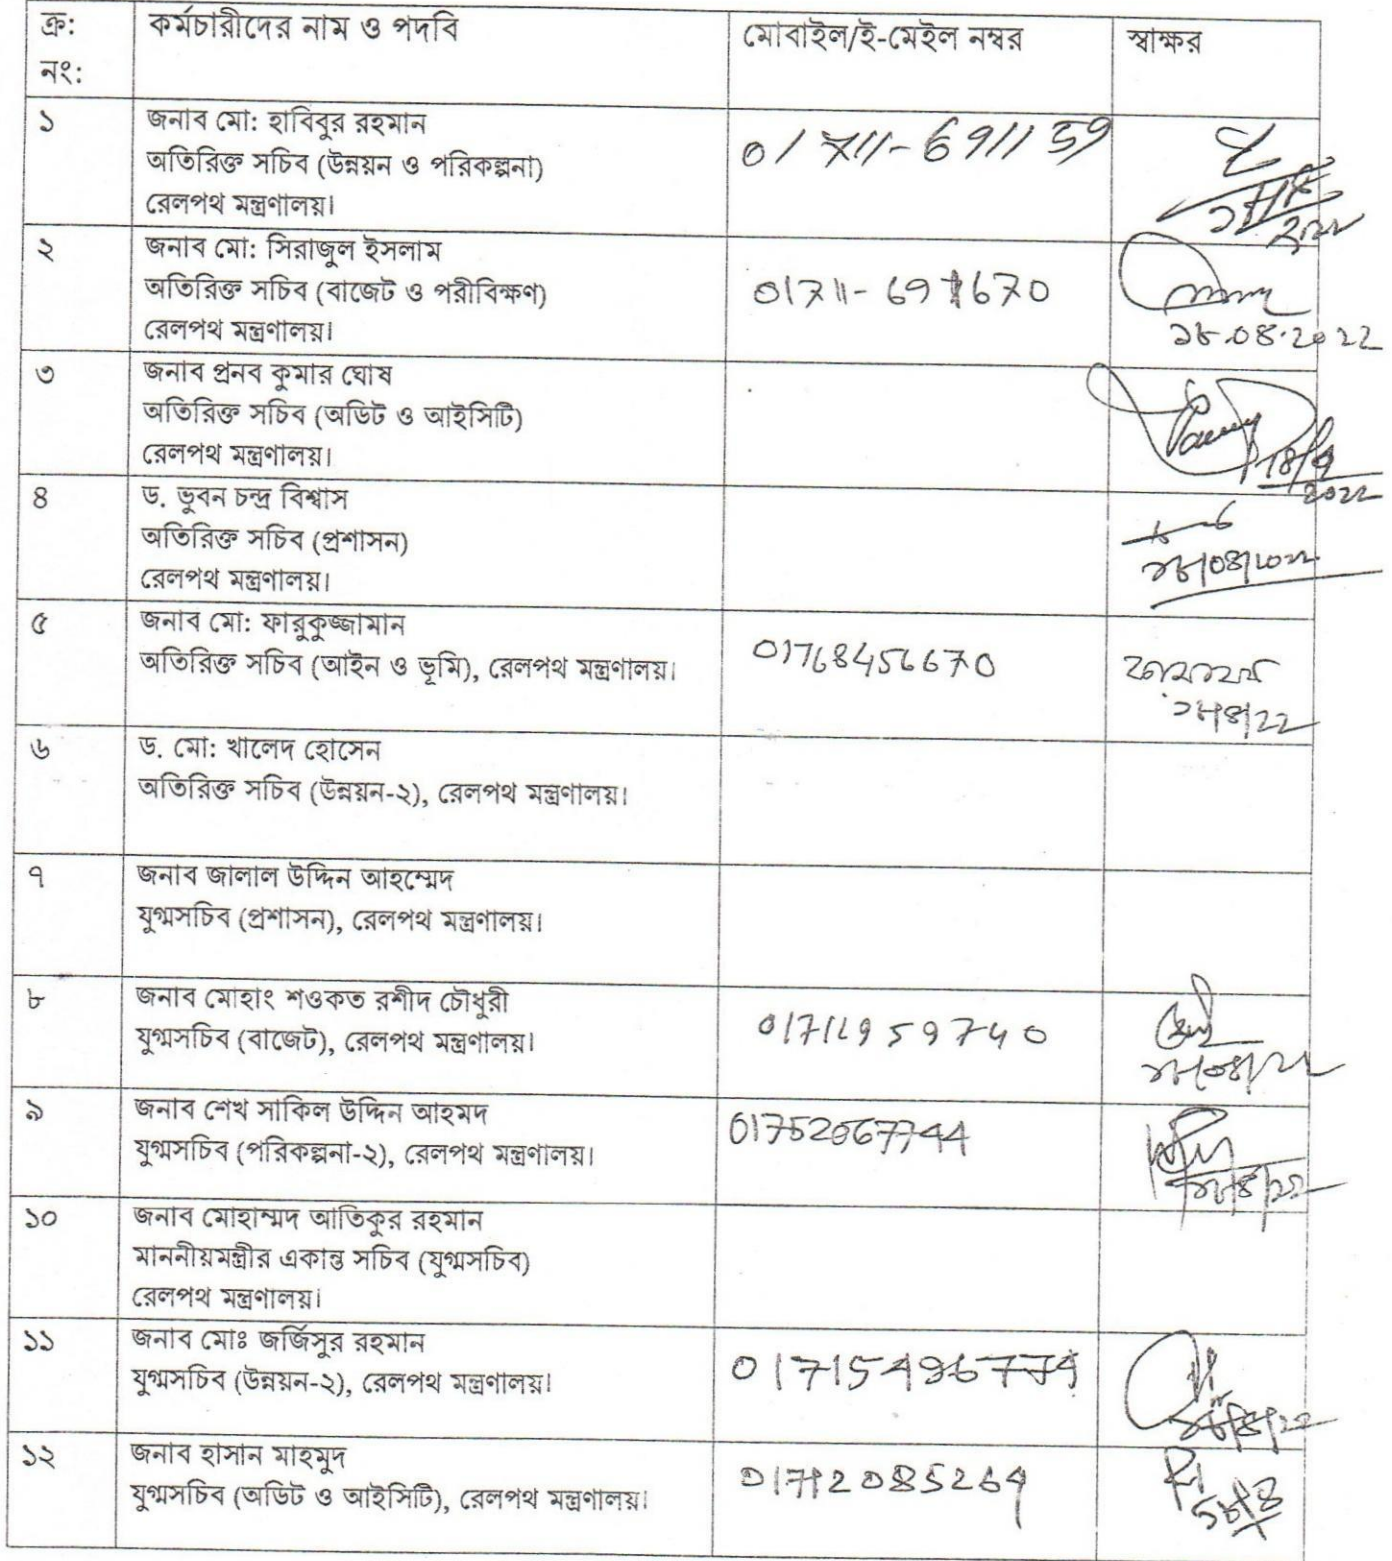 ক্র: কর্মচারীদের নাম ও পদবি মোবাইল/ই-মেইল নম্বর স্বাক্ষর
নং:
১ জনাব মো: হাবিবুর রহমান 01711-691139
অতিরিক্ত সচিব (উন্নয়ন ও পরিকল্পনা)
রেলপথ মন্ত্রণালয়।
২ জনাব মো: সিরাজুল ইসলাম
অতিরিক্ত সচিব (বাজেট ও পরীবিক্ষণ)
রেলপথ মন্ত্রণালয়।
১৮.০৪.2022
৩ জনাব প্রনব কুমার ঘোষ
অতিরিক্ত সচিব (অডিট ও আইসিটি)
রেলপথ মন্ত্রণালয়।
18/4
2022
৪ ড. ভুবন চন্দ্র বিশ্বাস
অতিরিক্ত সচিব (প্রশাসন)
রেলপথ মন্ত্রণালয়।
৫ জনাব মো: ফারুকুজ্জামান
অতিরিক্ত সচিব (আইন ও ভূমি), রেলপথ মন্ত্রণালয়। 01768456670
৬ ড. মো: খালেদ হোসেন
অতিরিক্ত সচিব (উন্নয়ন-২), রেলপথ মন্ত্রণালয়।
৭ জনাব জালাল উদ্দিন আহম্মেদ
যুগ্মসচিব (প্রশাসন), রেলপথ মন্ত্রণালয়।
৮ জনাব মোহাং শওকত রশীদ চৌধুরী
যুগ্মসচিব (বাজেট), রেলপথ মন্ত্রণালয়।
৯ জনাব শেখ সাকিল উদ্দিন আহমদ
যুগ্মসচিব (পরিকল্পনা-২), রেলপথ মন্ত্রণালয়।
১০ জনাব মোহাম্মদ আতিকুর রহমান
মাননীয়মন্ত্রীর একান্ত সচিব (যুগ্মসচিব)
রেলপথ মন্ত্রণালয়।
১১ জনাব মোঃ জর্জিসুর রহমান
যুগ্মসচিব (উন্নয়ন-২), রেলপথ মন্ত্রণালয়।
১২ জনাব হাসান মাহমুদ
যুগ্মসচিব (অডিট ও আইসিটি), রেলপথ মন্ত্রণালয়। 01712085264